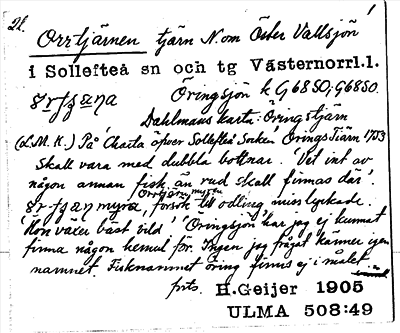 2l.
Orrtjärnen tjärn N. om Öster Vallsjön
i Sollefteå sn och tg Västernorrl.l.
Öringsjön k G6850; G6850.
Dahlmans karta: Öringstjärn
(L.M.K.) På 'Charta öfver Sollefteå Socken' Örings Tiärn 1753
Skall vara med dubbla bottnar. 'Vet int av
någon annan fisk än rud skall finnas där'.
Orrtjärnmyren
försök till odling misslyckade.
'Hon växer bäst vild' 'Öringsjön' har jag ej kunnat
finna någon hemul för. Ingen jag frågat känner igen
namnet. Fisknamnet öring finns ej i målet.
forts. H.Geijer 1905
ULMA 508:49